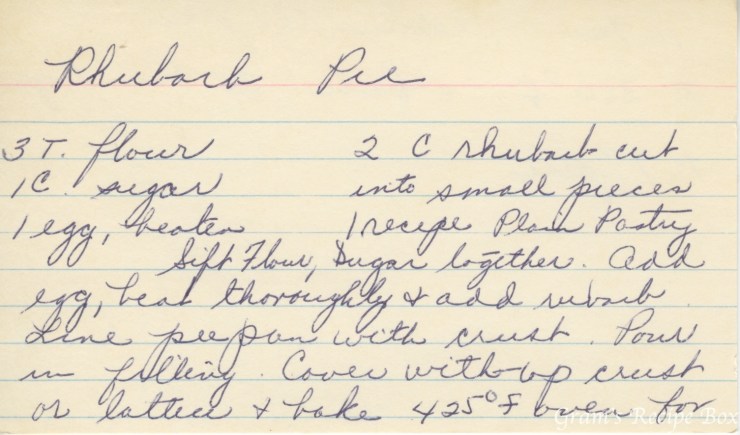 Rhubarb Pie
3 T. flour 2 C rhubarb cut
1 C. sugar into small pieces
1 egg, beaten 1 recipe Plain Pastry
Sift Flour, Sugar together. Add
egg, beat thoroughly & add rubarb.
Line pie pan with crust. Pour
in filling. Cover with top crust
or lattice & bake 425° F oven for
Grant's Recipe Box